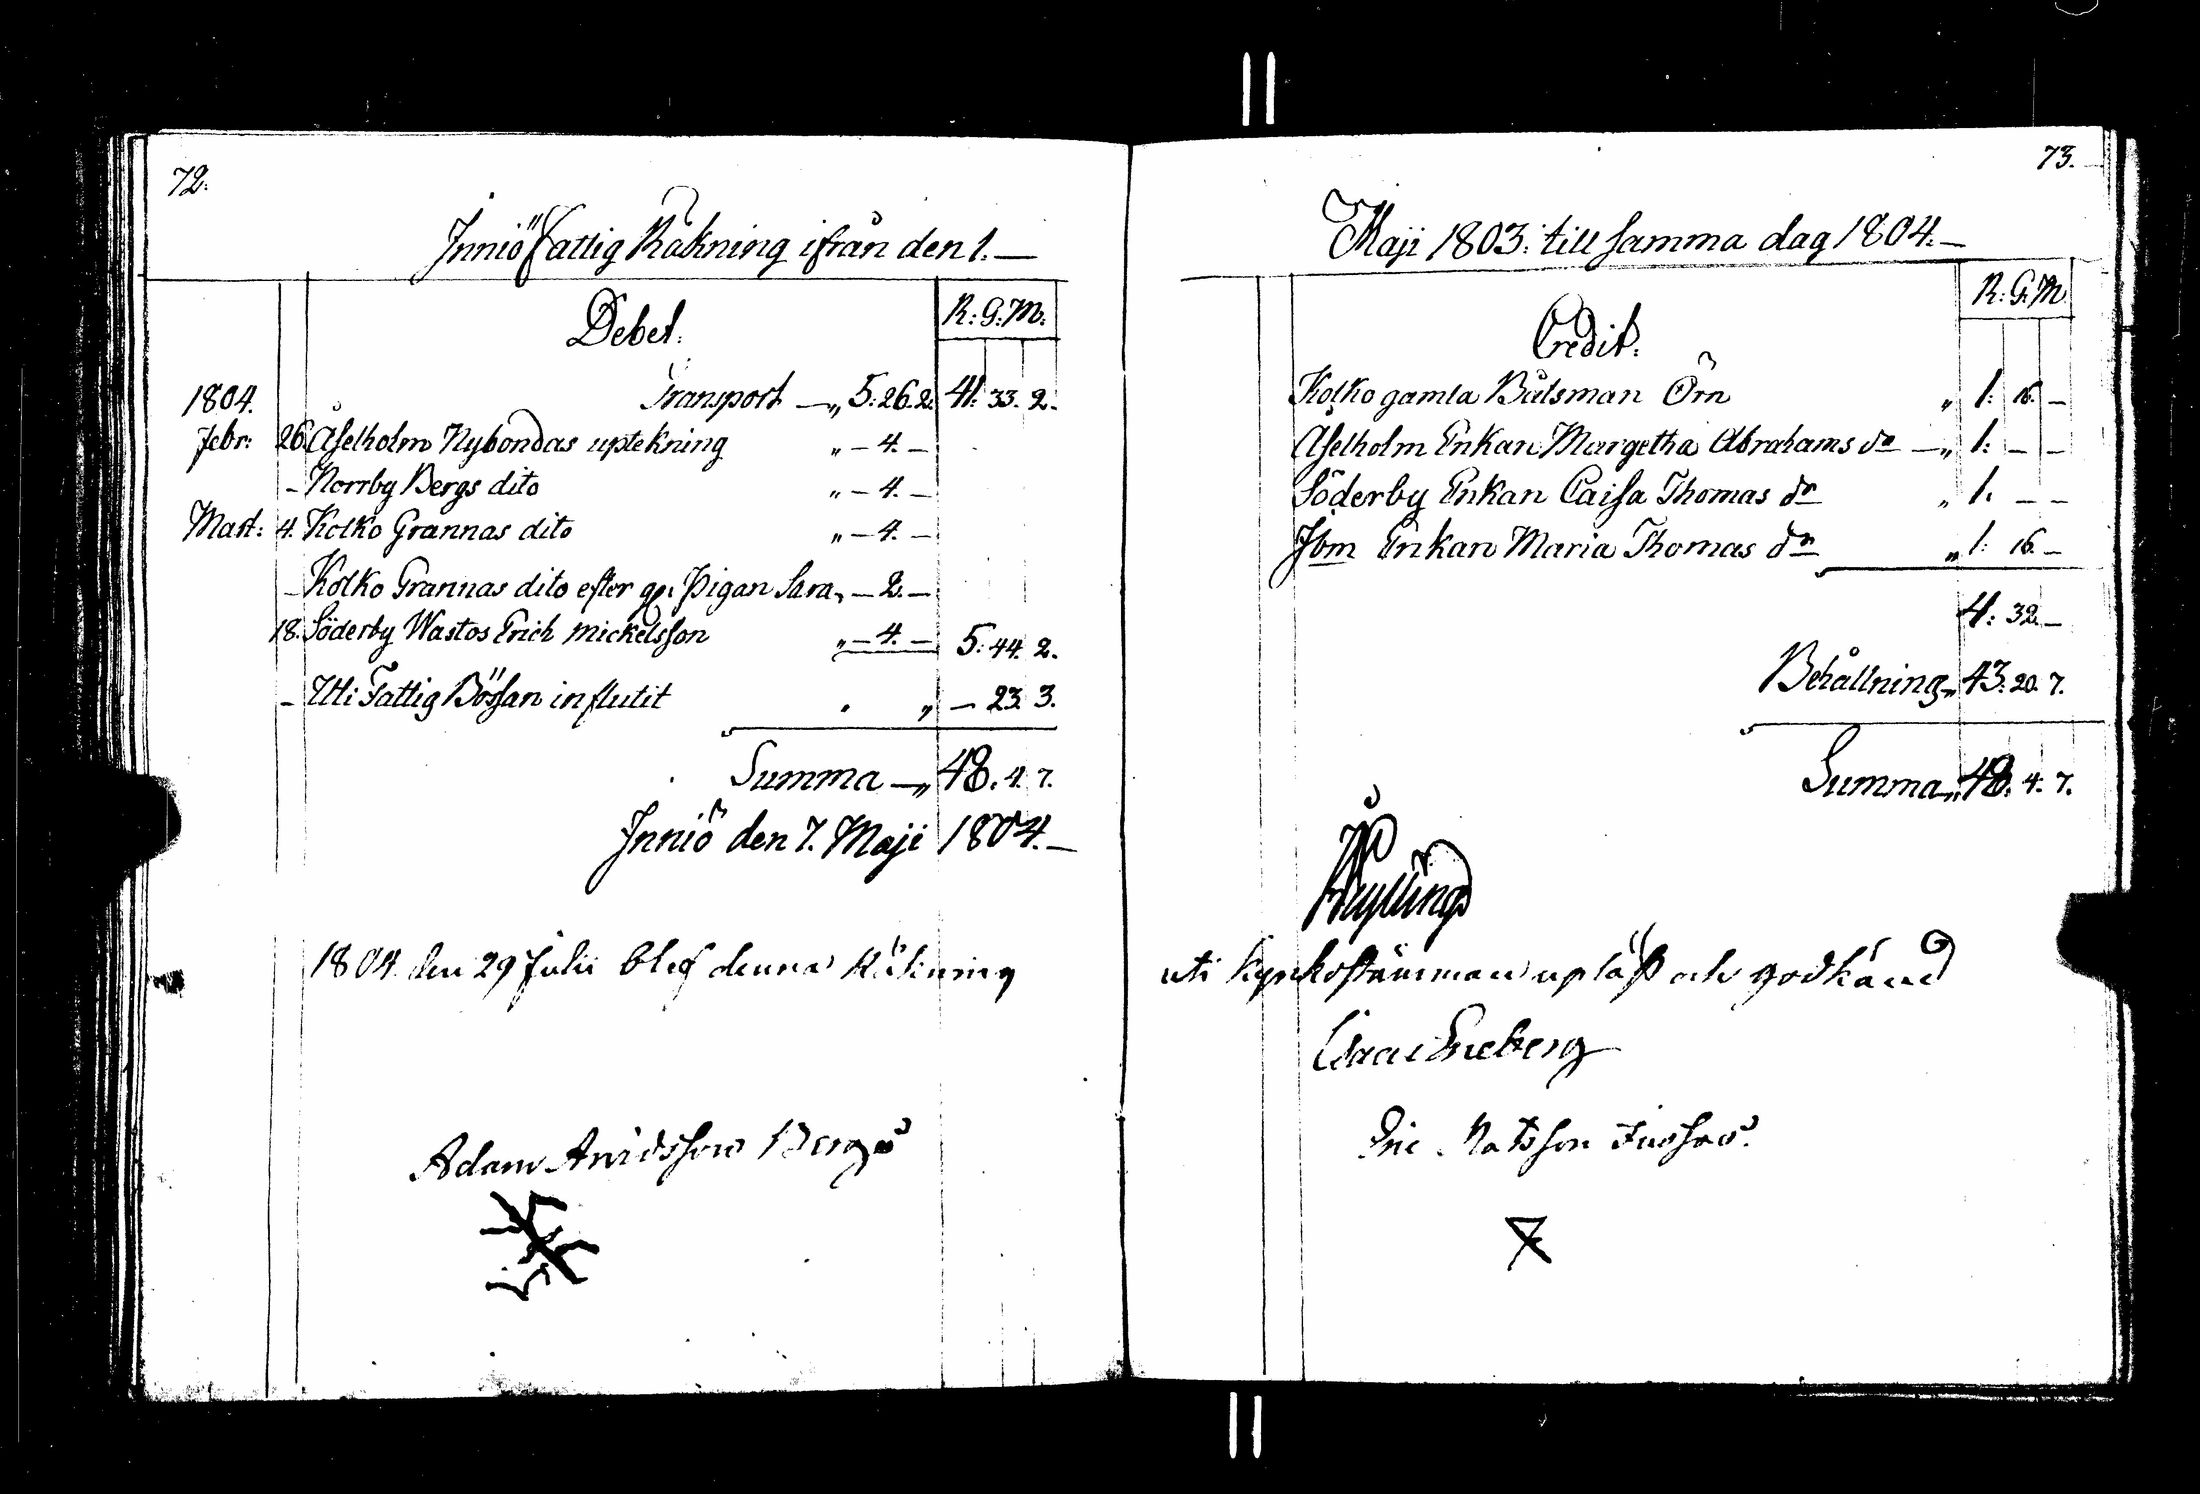 72.
Inniö Fattig Räkning ifrån den 1.—
Debet. R: G: M:
1804. Transport —„ 5: 26. 2. 41: 33. 2.
Febr: 26. Åselholm Nybondas uptekning „ — 4. —
— Norrby Bergs dito „ — 4. —
Mart: 4. Kolko Grannas dito „ — 4. —
— Kolko Grannas dito efter Pigan Sara „ — 2. —
18. Söderby Wastos Erich Mickelsson „ — 4. — 5: 44. 2.
— Uti Fattig Bössan influtit „ — 23. 3.
Summa —„ 48. 4. 7.
Inniö den 7. Maji 1804.—
1804 den 29 Julii blef denna Räkning
Adam Arvidsson Bergs
73.
Maji 1803: till samma dag 1804.—
Credit: R: G: M
Kolko gamla Båtsman Örn „ 1: 16. —
Åselholm Enkan Margetha Abrahams dr —„ 1: — —
Söderby Enkan Caisa Thomas dr „ 1. — —
Ibm Enkan Maria Thomas dr „ 1: 16. —
4: 32. —
Behållning „ 43: 20. 7.
Summa „ 48. 4. 7.
uti Kyrkostämman upläst och godkänd
Eric Matsson